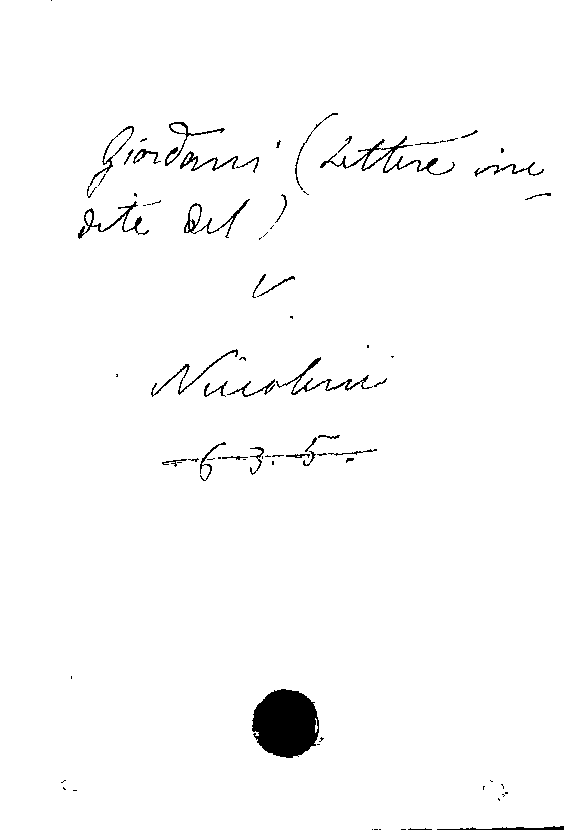 Giordani (Lettere ine
dite del)
V.
Niccolini
6. 3. 5.